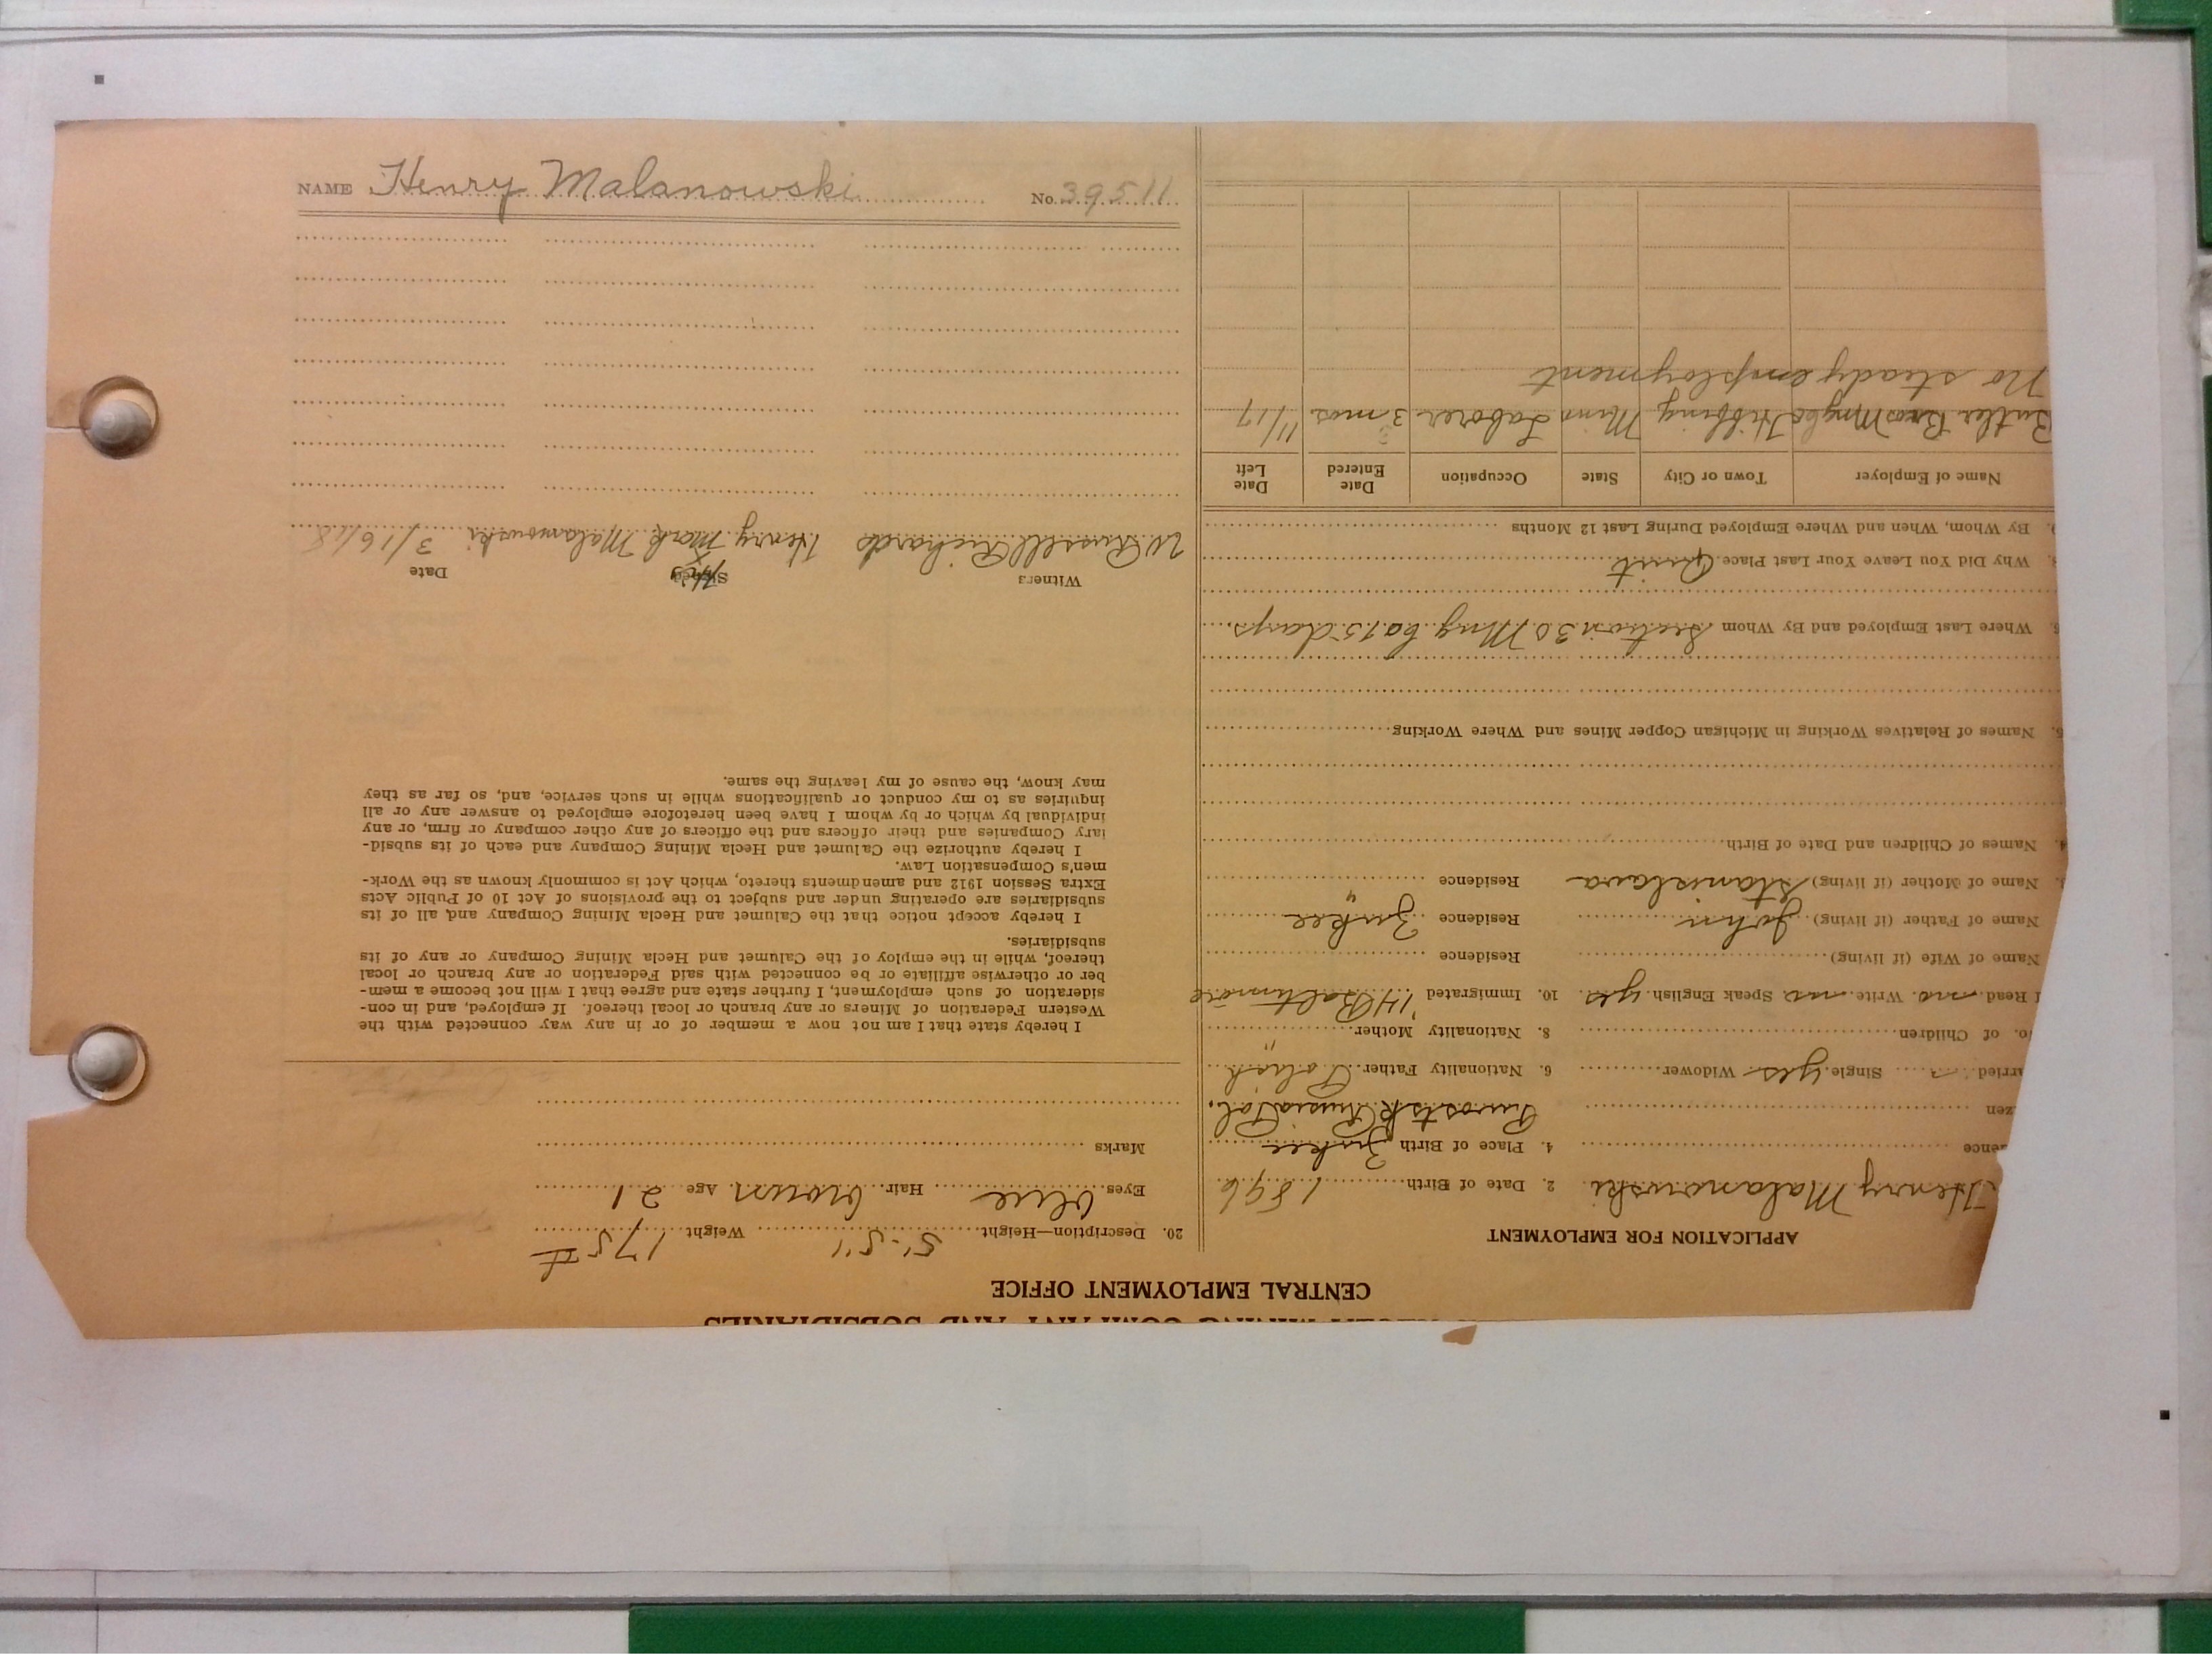 NAME Henry Malanowski No. 39511
MINING COMPANY AND SUBSIDIARIES
CENTRAL EMPLOYMENT OFFICE
APPLICATION FOR EMPLOYMENT
Henry Malanowski 2. Date of Birth 1896
4. Place of Birth
Russia Pol.
Single yes Widower 6. Nationality Father Polish
of Children 8. Nationality Mother "
Read no Write no Speak English yes 10. Immigrated '14 Baltimore
Name of Wife (if living) Residence
Name of Father (if living) John Residence
Name of Mother (if living) Stanislawa Residence "
4. Names of Children and Date of Birth
5. Names of Relatives Working in Michigan Copper Mines and Where Working
6. Where Last Employed and By Whom Section 30 Mng Co 15 days
Why Did You Leave Your Last Place Quit
By Whom, When and Where Employed During Last 12 Months
Name of Employer Town or City State Occupation Date Entered Date Left
Butler Bros Mng Co Hibbing Minn Laborer 3 mos 11/17
No steady employment
20. Description—Height 5'-5" Weight 175 #
Eyes blue Hair brown Age 21
Marks
I hereby state that I am not now a member of or in any way connected with the
Western Federation of Miners or any branch or local thereof. If employed, and in con-
sideration of such employment, I further state and agree that I will not become a mem-
ber or otherwise affiliate or be connected with said Federation or any branch or local
thereof, while in the employ of the Calumet and Hecla Mining Company or any of its
subsidiaries.
I hereby accept notice that the Calumet and Hecla Mining Company and, all of its
subsidiaries are operating under and subject to the provisions of Act 10 of Public Acts
Extra Session 1912 and amendments thereto, which Act is commonly known as the Work-
men's Compensation Law.
I hereby authorize the Calumet and Hecla Mining Company and each of its subsid-
iary Companies and their officers and the officers of any other company or firm, or any
individual by which or by whom I have been heretofore employed to answer any or all
inquiries as to my conduct or qualifications while in such service, and, so far as they
may know, the cause of my leaving the same.
Witness Signed His Date
W. Russell Richards Henry X Mark Malanowski 3/16/18